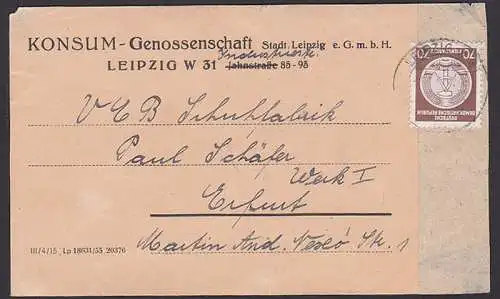 KONSUM - Genossenschaft Stadt Leipzig e. G. m. b. H.
Industriestr.
LEIPZIG W 31 Jahnstraße 85 - 95
VEB Schuhfabrik
Paul Schäfer
Werk I
Erfurt
Martin And. Nexö Str. 1
III/4/15 Lp 18631/53 20376
70 70
DEUTSCHE
DEMOKRATISCHE REPUBLIK